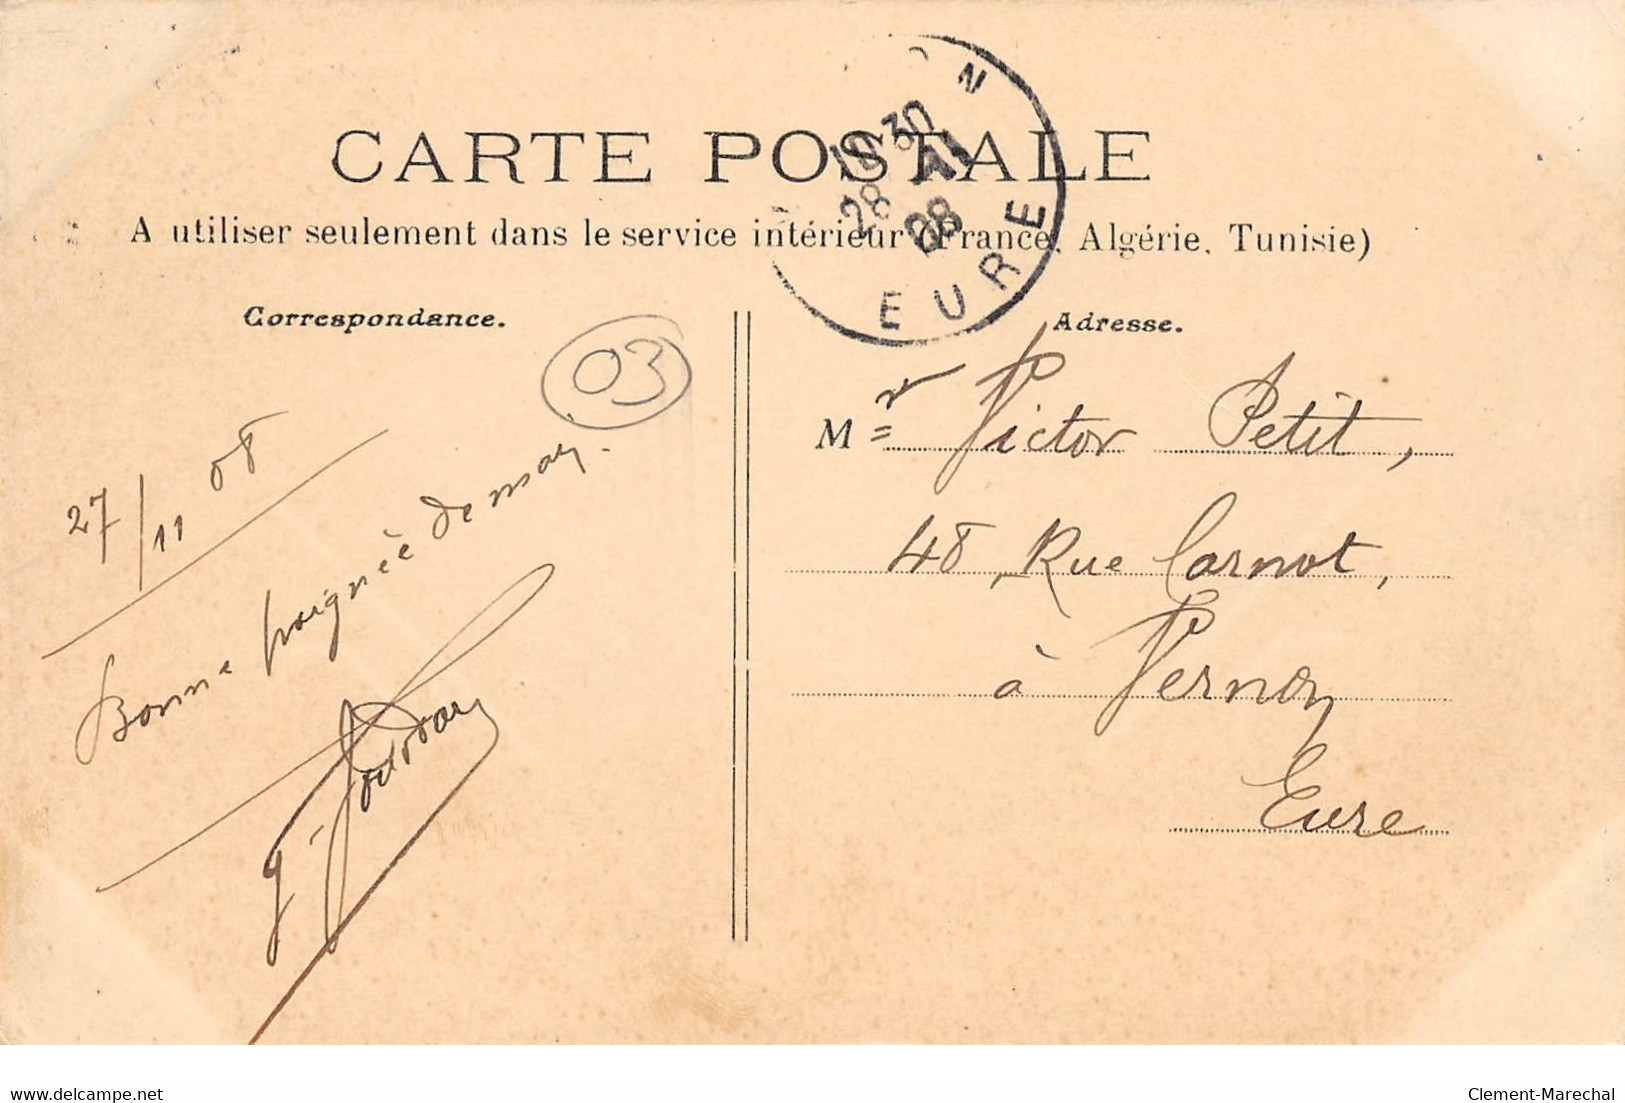 CARTE POSTALE
A utiliser seulement dans le service intérieur (France, Algérie, Tunisie)
10-30
28 -11
08
EURE
Correspondance.
03
27/11 08
Bonne poignée de main.
Adresse.
Mr Victor Petit,
48, Rue Carnot,
à Vernon
Eure
delcampe.net
Clement-Marechal